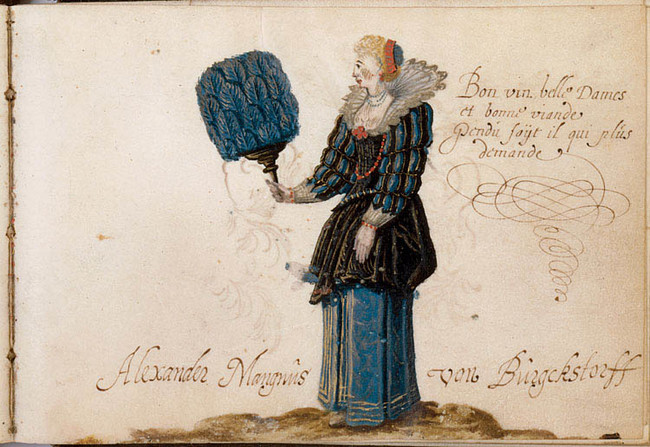 Bon vin belle Dames
et bonne viande
Pendu soÿt il qui plus
demande
Alexander Mangnüs von Bürgckstorff